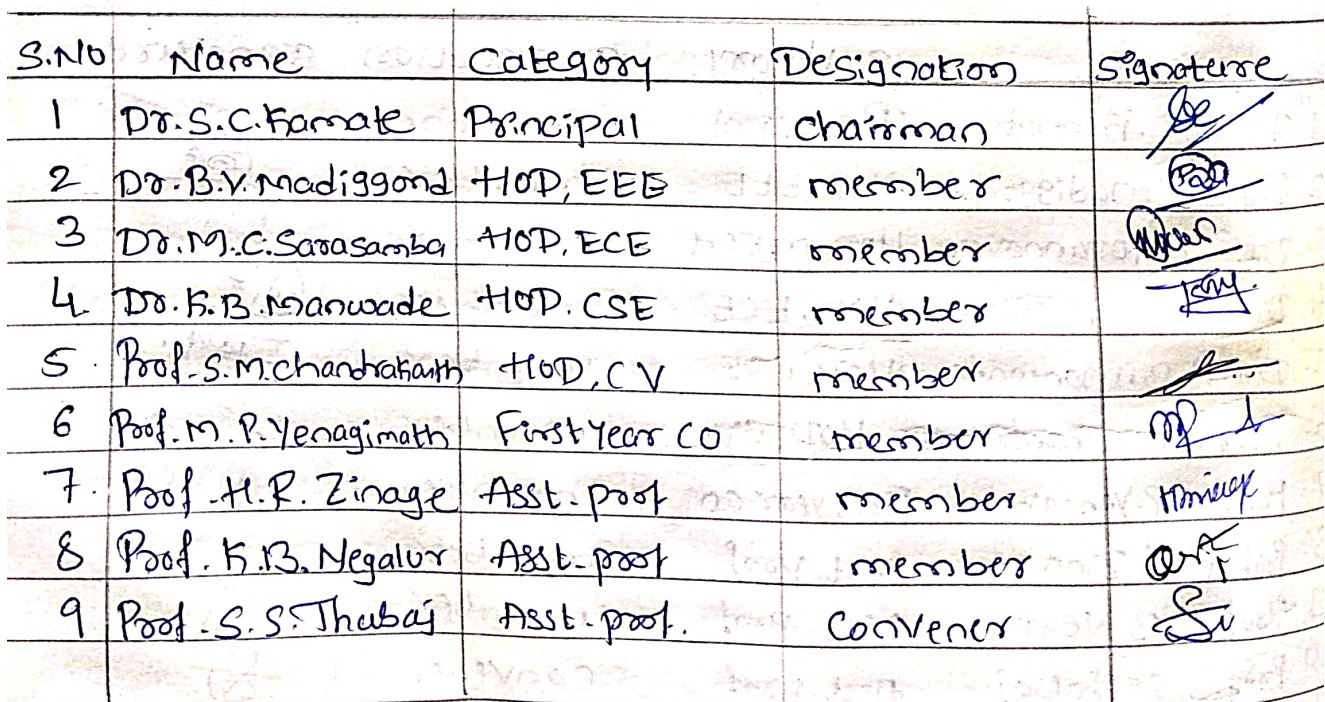 S.No Name Category Designation Signature
1 Dr. S.C. Kamate Principal Chairman
2 Dr. B.V. Madiggond HOD, EEE member
3 Dr. M.C. Sarasamba HOD, ECE member
4 Dr. K.B. Manwade HOD. CSE member
5. Prof. S.M. Chandrakanth HOD, CV member
6 Prof. M.P. Yenagimath First Year CO member
7. Prof. H.R. Zinage Asst. prof member
8 Prof. K.B. Negalur Asst. prof member
9 Prof. S.S. Thabaj Asst. prof. Convener